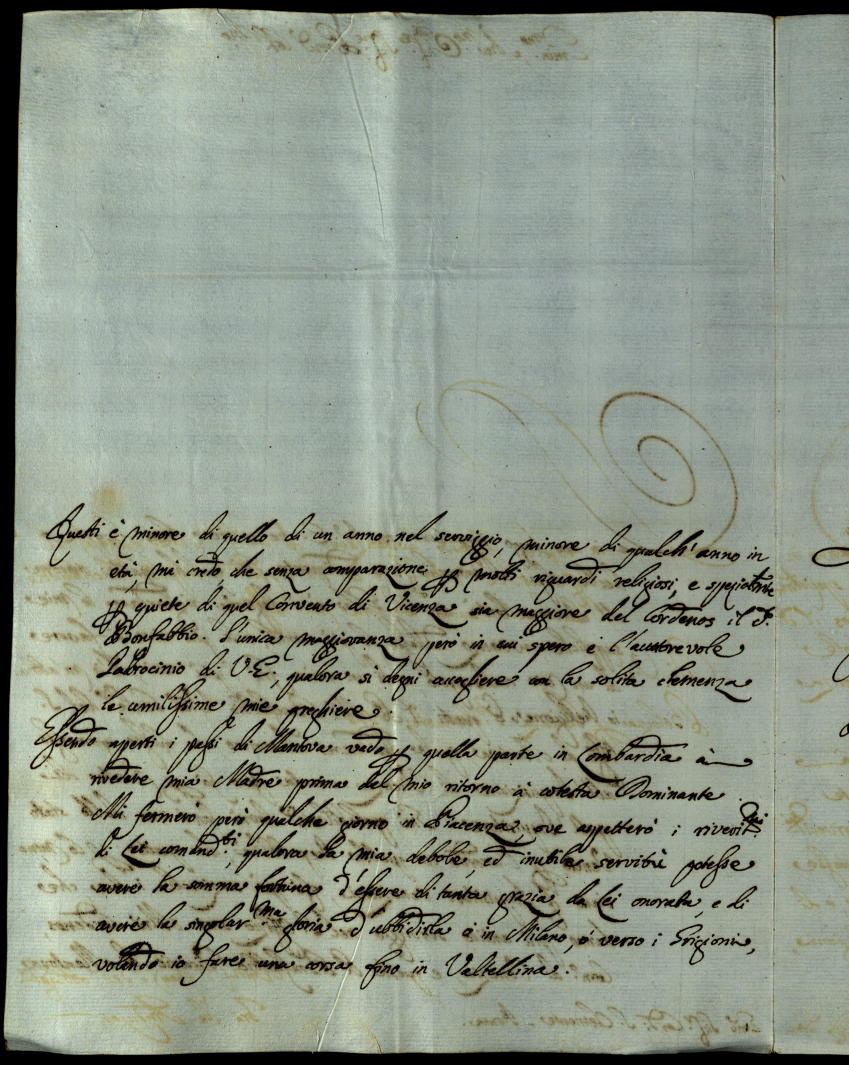 Questi è minore di quello di un anno nel servigio, minore di qualch' anno in
età, mi credo che senza comparazione p molti riguardi religiosi, e spezialmte
p quiete di quel Convento di Vicenza sia maggiore del Cordenos il P.
Bonfabbio. L'unica maggioranza però in cui spero è l'autorevole
Patrocinio di V.E., qualora si degni accogliere con la solita clemenza
le umilissime mie preghiere.
Essendo aperti i passi di Mantova vado p quella parte in Lombardia à
rivedere mia Madre prima del mio ritorno à cotesta Dominante.
Mi fermerò però qualche giorno in Piacenza, ove aspetterò i riverit.mi
di Lei comand.ti, qualora la mia debole, ed inutile servitù potesse
avere la somma fortuna d'essere di tanta grazia da Lei onorata, e di
avere la singolar.ma gloria d'ubbidirla ò in Milano, ò verso i Grigioni,
volando io fare una corsa fino in Valtellina.